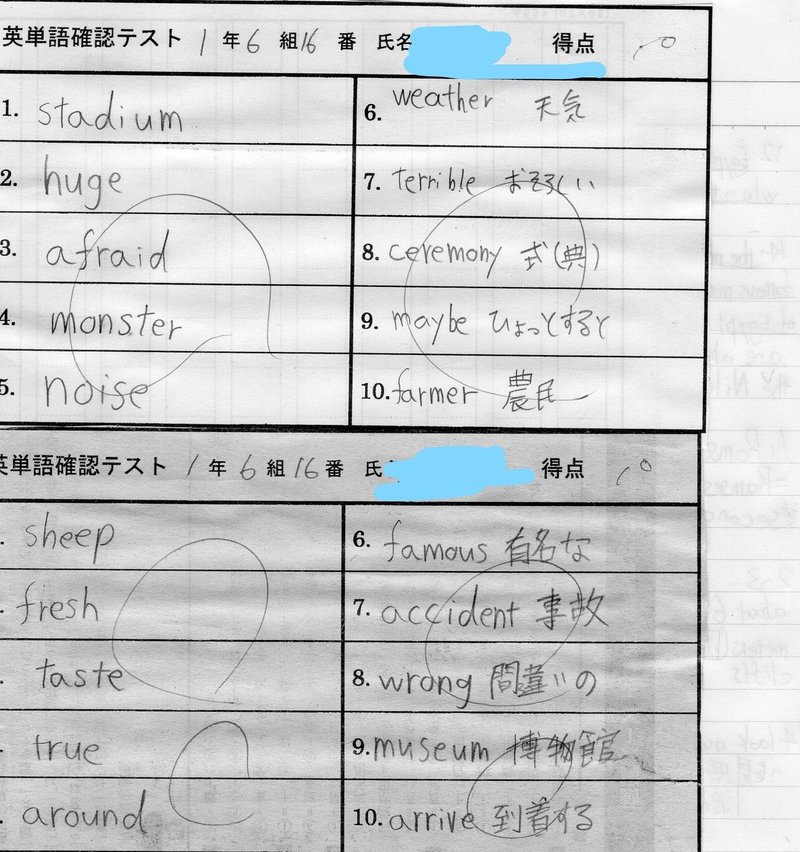 英単語確認テスト 1年6組16番 氏名 得点 10
1. stadium
2. huge
3. afraid
4. monster
5. noise
6. weather 天気
7. terrible おそろしい
8. ceremony 式(典)
9. maybe ひょっとすると
10. farmer 農民
英単語確認テスト 1年6組16番 氏 得点 10
. sheep
. fresh
. taste
. true
. around
6. famous 有名な
7. accident 事故
8. wrong 間違いの
9. museum 博物館
10. arrive 到着する